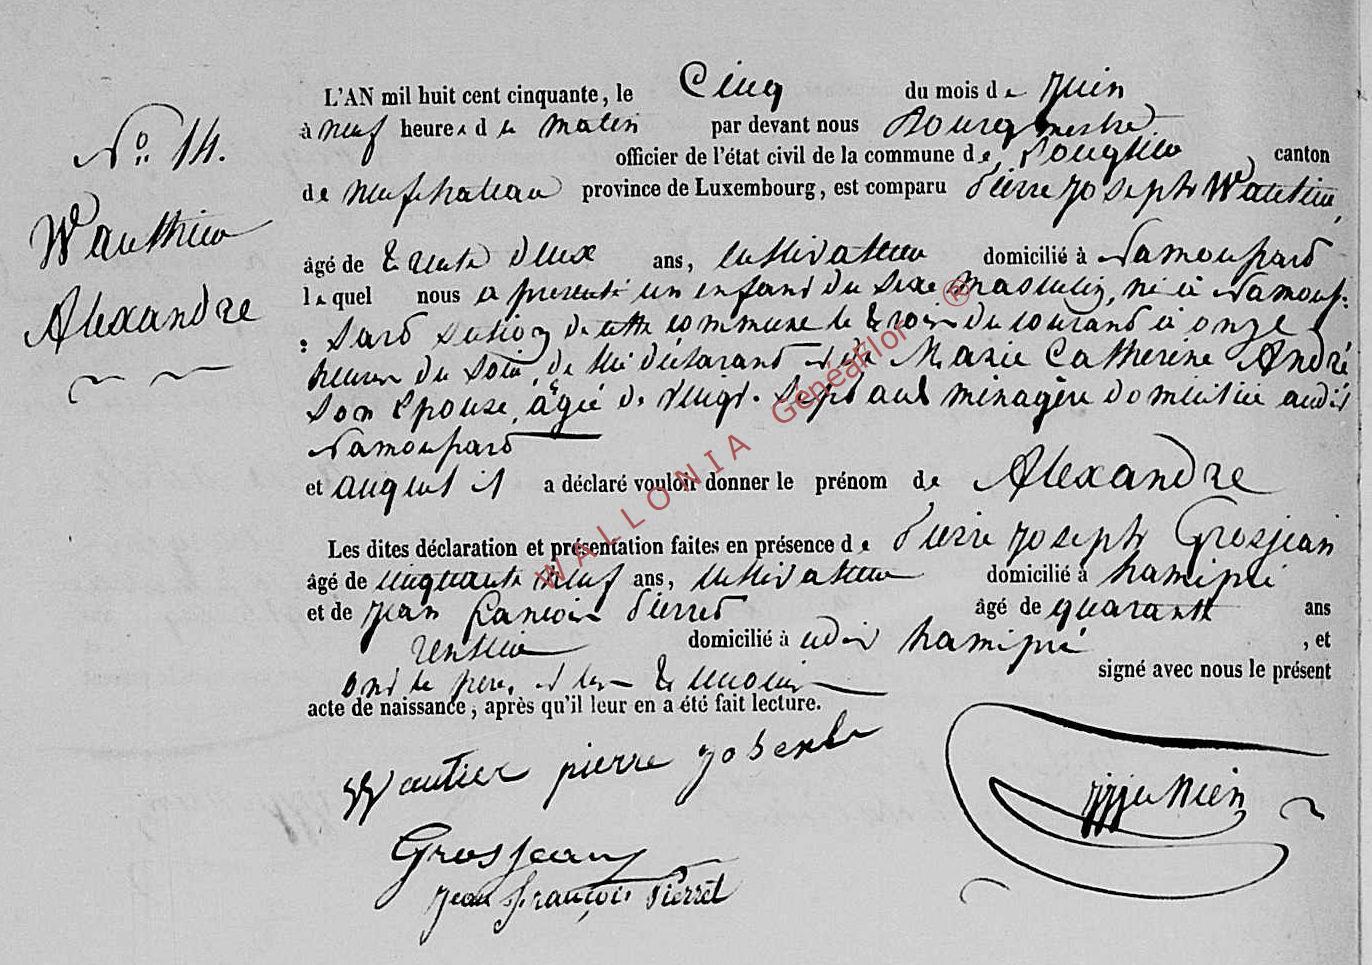 No. 14.
Wauthier
Alexandre
L'AN mil huit cent cinquante, le Cinq du mois de Juin
à neuf heures du matin par devant nous Bourgmestre
officier de l'état civil de la commune de, canton
de neufchateau province de Luxembourg, est comparu Pierre Joseph Wautier,
âgé de trente deux ans, cultivateur domicilié à Namoussard
lequel nous a presenté un enfant du sexe masculin, né à Namous=
=sard section de cette commune le trois du courant à onze
heures du soir, de lui déclarant et de Marie Catherine André
son épouse, âgée de vingt-sept ans ménagère domiciliée audit
Namoussard
et auquel il a déclaré vouloir donner le prénom de Alexandre
Les dites déclaration et présentation faites en présence de Pierre Joseph Grosjean
âgé de cinquante neuf ans, cultivateur domicilié à hamipré
et de Jean François Pierret âgé de quarante ans
rentier domicilié à udit hamipré, et
ont le père, et les témoins signé avec nous le présent
acte de naissance, après qu'il leur en a été fait lecture.
Wautier pierre joseph
Grosjean
Jean françois Pierret
WALLONIA GenéaFlor ®